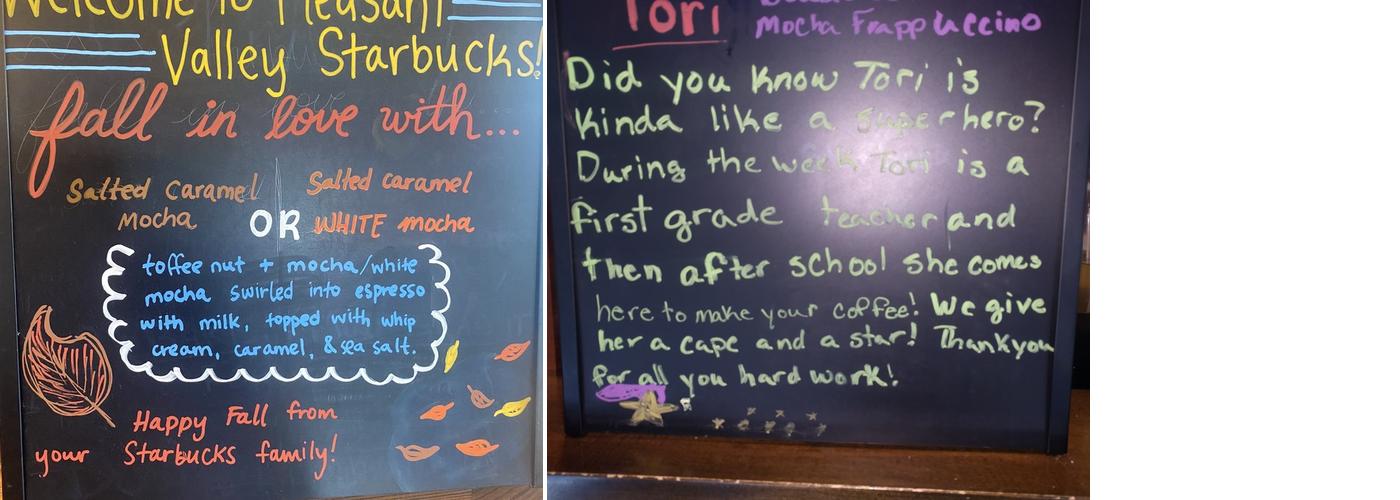 Welcome to Pleasant
Valley Starbucks!
fall in love with...
Salted caramel
Mocha
OR
Salted caramel
WHITE mocha
toffee nut + mocha/white
mocha swirled into espresso
with milk, topped with whip
cream, caramel, & sea salt.
Happy Fall from
your Starbucks family!
Tori
Mocha Frappuccino
Did you know Tori is
Kinda like a superhero?
During the week Tori is a
first grade teacher and
then after school she comes
here to make your coffee! We give
her a cape and a star! Thankyou
for all you hard work!